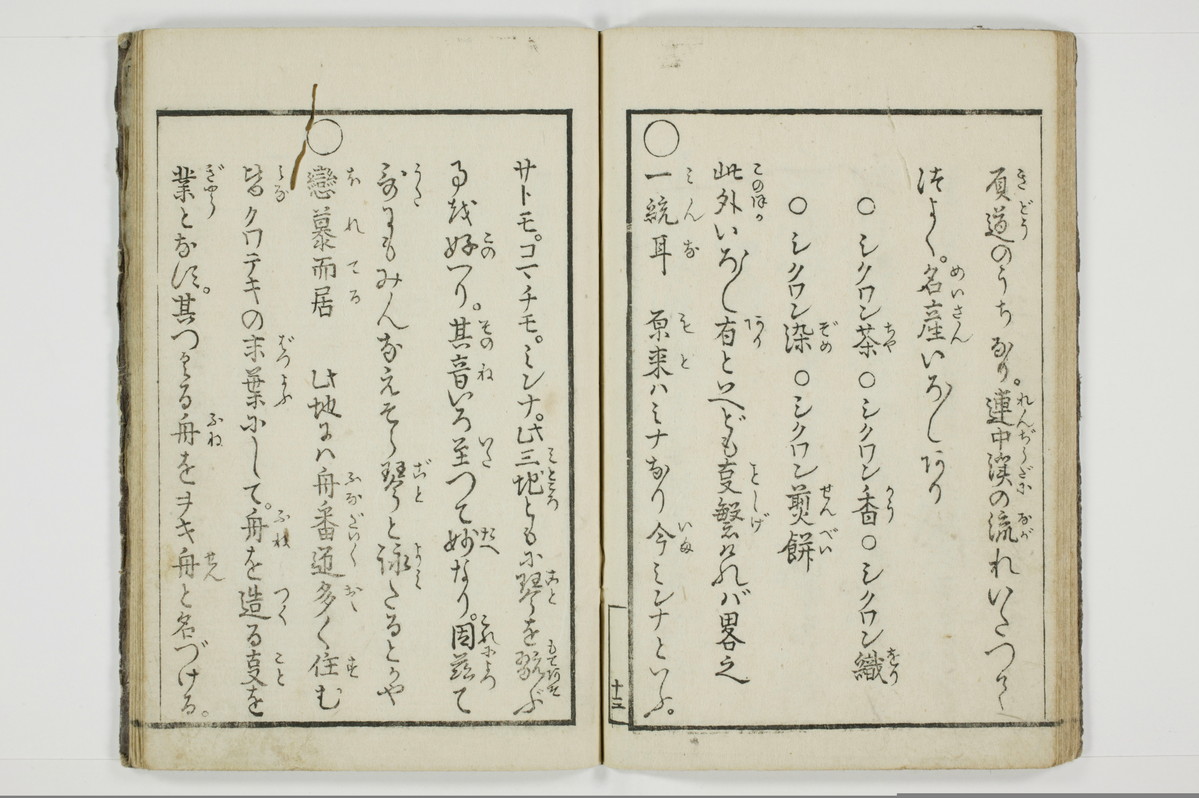 道のうちなり。蓮中渓の流れいたつて
つよく。名産いろ〳〵あり
○シクワン茶○シクワン香○シクワン織
○シクワン染○シクワン煎餅
此外いろ〳〵有といへども事繁ければ畧之
○一統耳 原来ハミナなり今ミンナといふ。
十三
サトモ。コマチモ。ミンナ。此三地ともに琴を翫ぶ
事を好めり。其音いろ至つて妙なり。因茲て
哥にもみんなえそら琴と詠たるとかや
○戀慕而居 此地にハ舟番匠多く住む
皆クワテキの末葉にして。舟を造る事を
業となす。其つくる舟をヲキ舟と名づける。